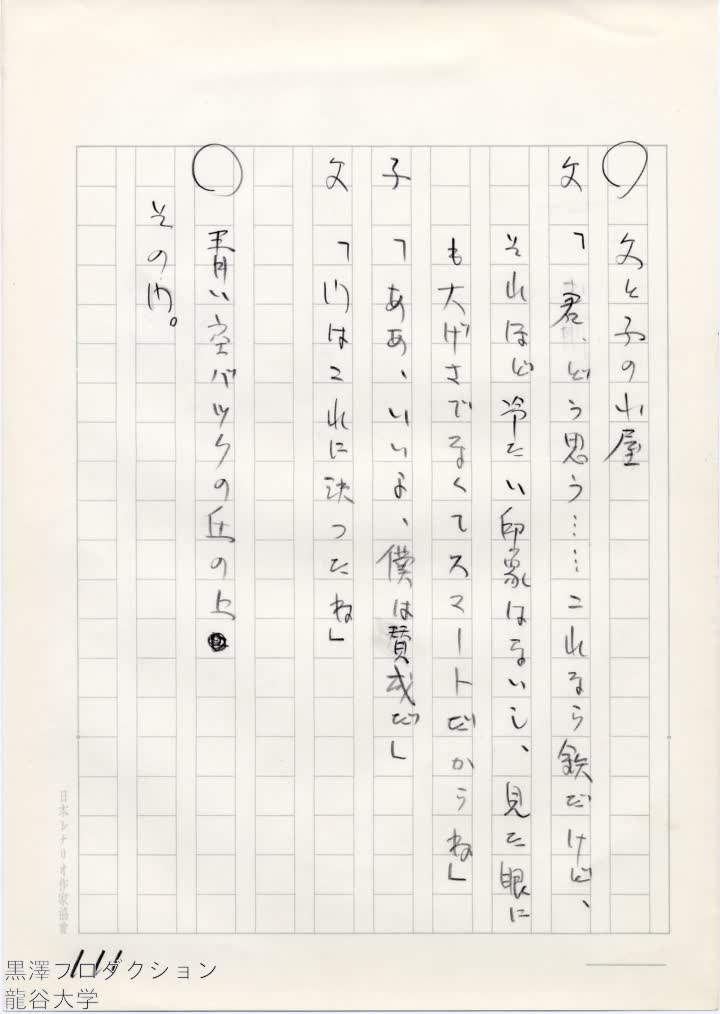 ○ 父と子の小屋
父「君、どう思う……これなら鉄だけど、
それほど冷たい印象はないし、見た眼に
も大げさでなくてスマートだからね」
子「ああ、いいよ、僕は賛成だ」
父「門はこれに決ったね」
○ 青い空バックの丘の上
その門。
日本シナリオ作家協會
111
黒澤プロダクション
龍谷大学